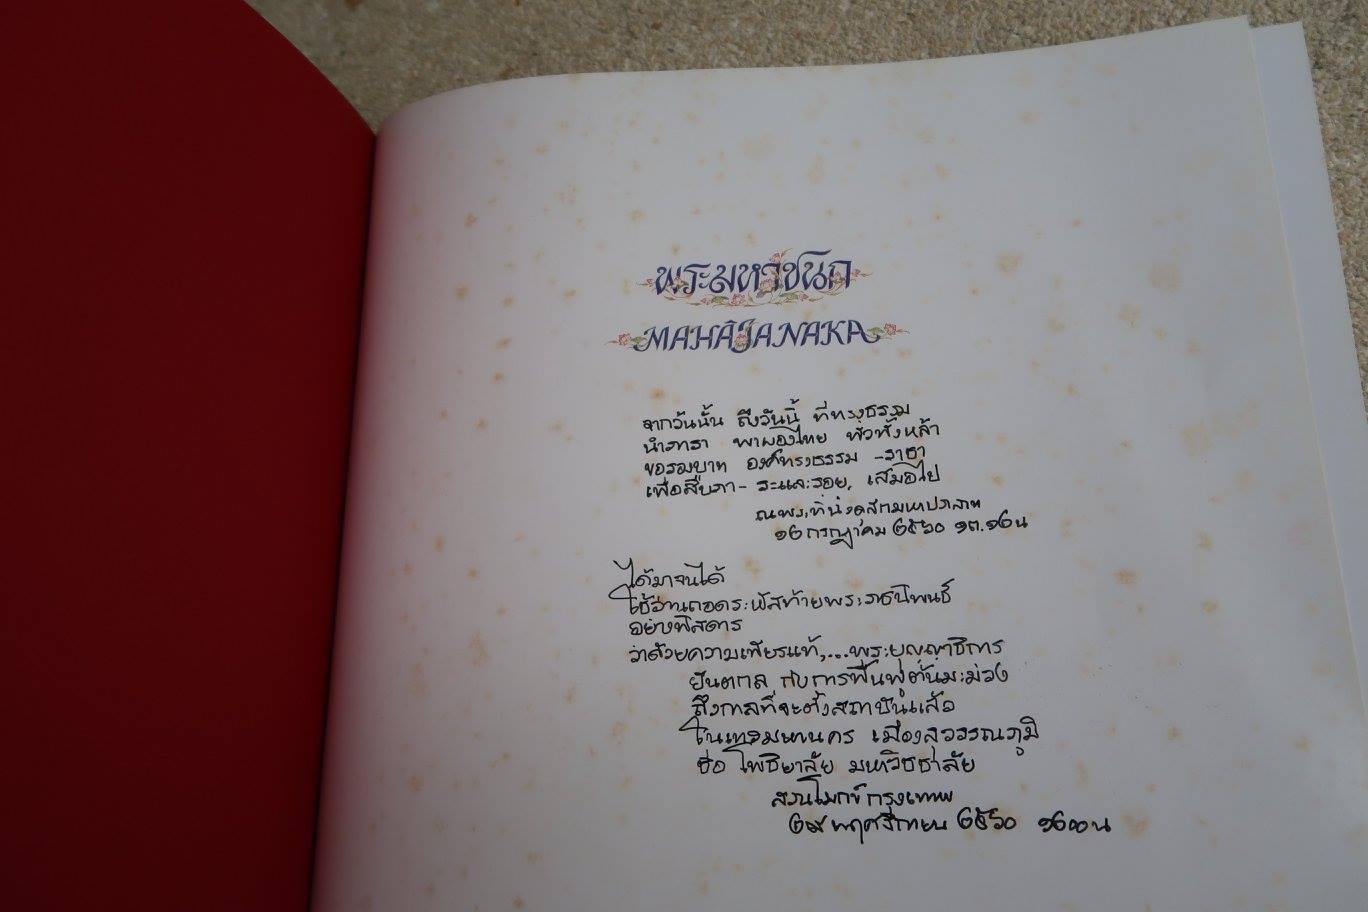 พระมหาชนก
MAHĀJANAKA
จากวันนั้น ถึงวันนี้ ที่ทรงธรรม
นำภารา พาผองไทย ทั่วทั้งหล้า
ขอรองบาท องค์ทรงธรรม -ราชา
เพื่อสืบภา - ระและรอย, เสมอไป
ณ พระที่นั่งดุสิตมหาปราสาท
๑๒ กรกฎาคม ๒๕๖๐ ๑๓.๑๒ น
ได้มาจนได้
ใช้อ่านถอดระหัสท้ายพระราชนิพนธ์
อย่างพิสดาร
ว่าด้วยความเพียรแท้,...พระปุญญาธิการ
ยันตกล กับการฟื้นฟูต้นมะม่วง
ถึงกาลที่จะตั้งสถาบันแล้ว
ในเทพมหานคร เมืองสุวรรณภูมิ
ชื่อ โพธิยาลัย มหาวิชชาลัย
สวนโมกข์กรุงเทพ
๒๙ พฤศจิกายน ๒๕๖๐